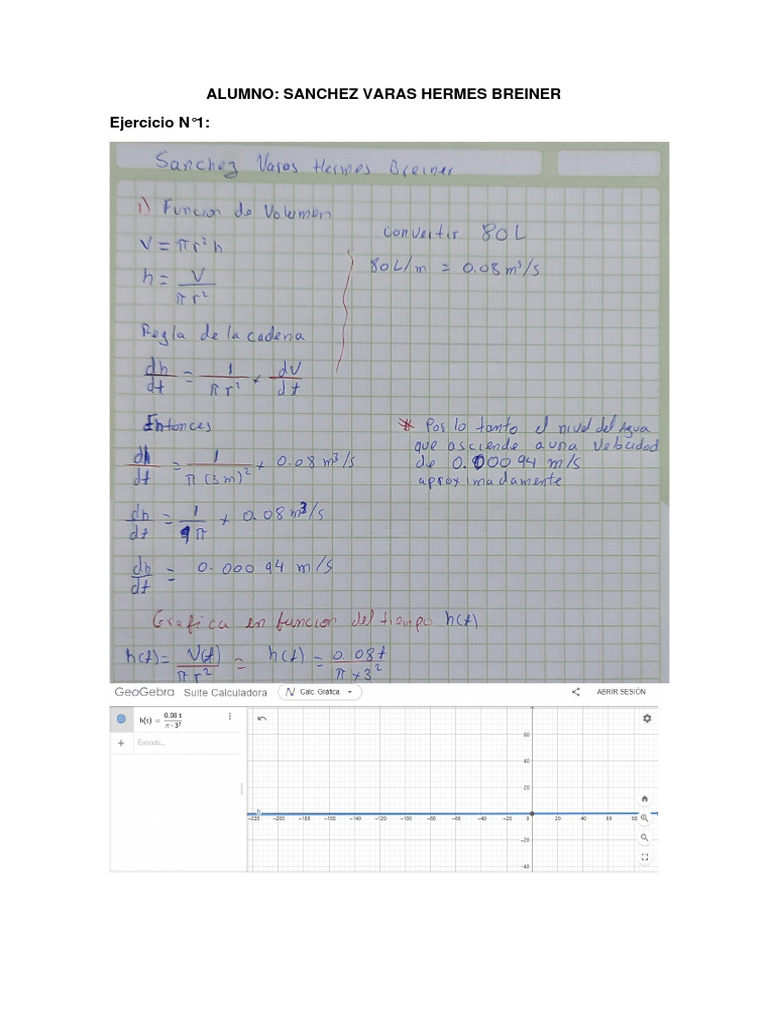 ALUMNO: SANCHEZ VARAS HERMES BREINER
Ejercicio N°1:
Sanchez Varas Hermes Breiner
1) Funcion de Volumen
V = πr²h
h = V / πr²
convertir 80L
80L/m = 0.08m³/s
Regla de la cadena
dh/dt = 1/πr² × dV/dt
Entonces
dh/dt = 1/π(3m)² × 0.08 m³/s
dh/dt = 1/9π × 0.08m³/s
dh/dt = 0.00094 m/s
* Por lo tanto el nivel del agua
que asciende a una velocidad
de 0.00094 m/s
aproximadamente
Grafica en funcion del tiempo h(t)
h(t) = V(t)/πr² = h(t) = 0.08t/π×3²
GeoGebra Suite Calculadora Calc. Gráfica ABRIR SESIÓN
h(t) = 0.08 t / π · 3²
Entrada...
60
40
20
-220 -200 -180 -160 -140 -120 -100 -80 -60 -40 -20 0 20 40 60 80
-20
-40